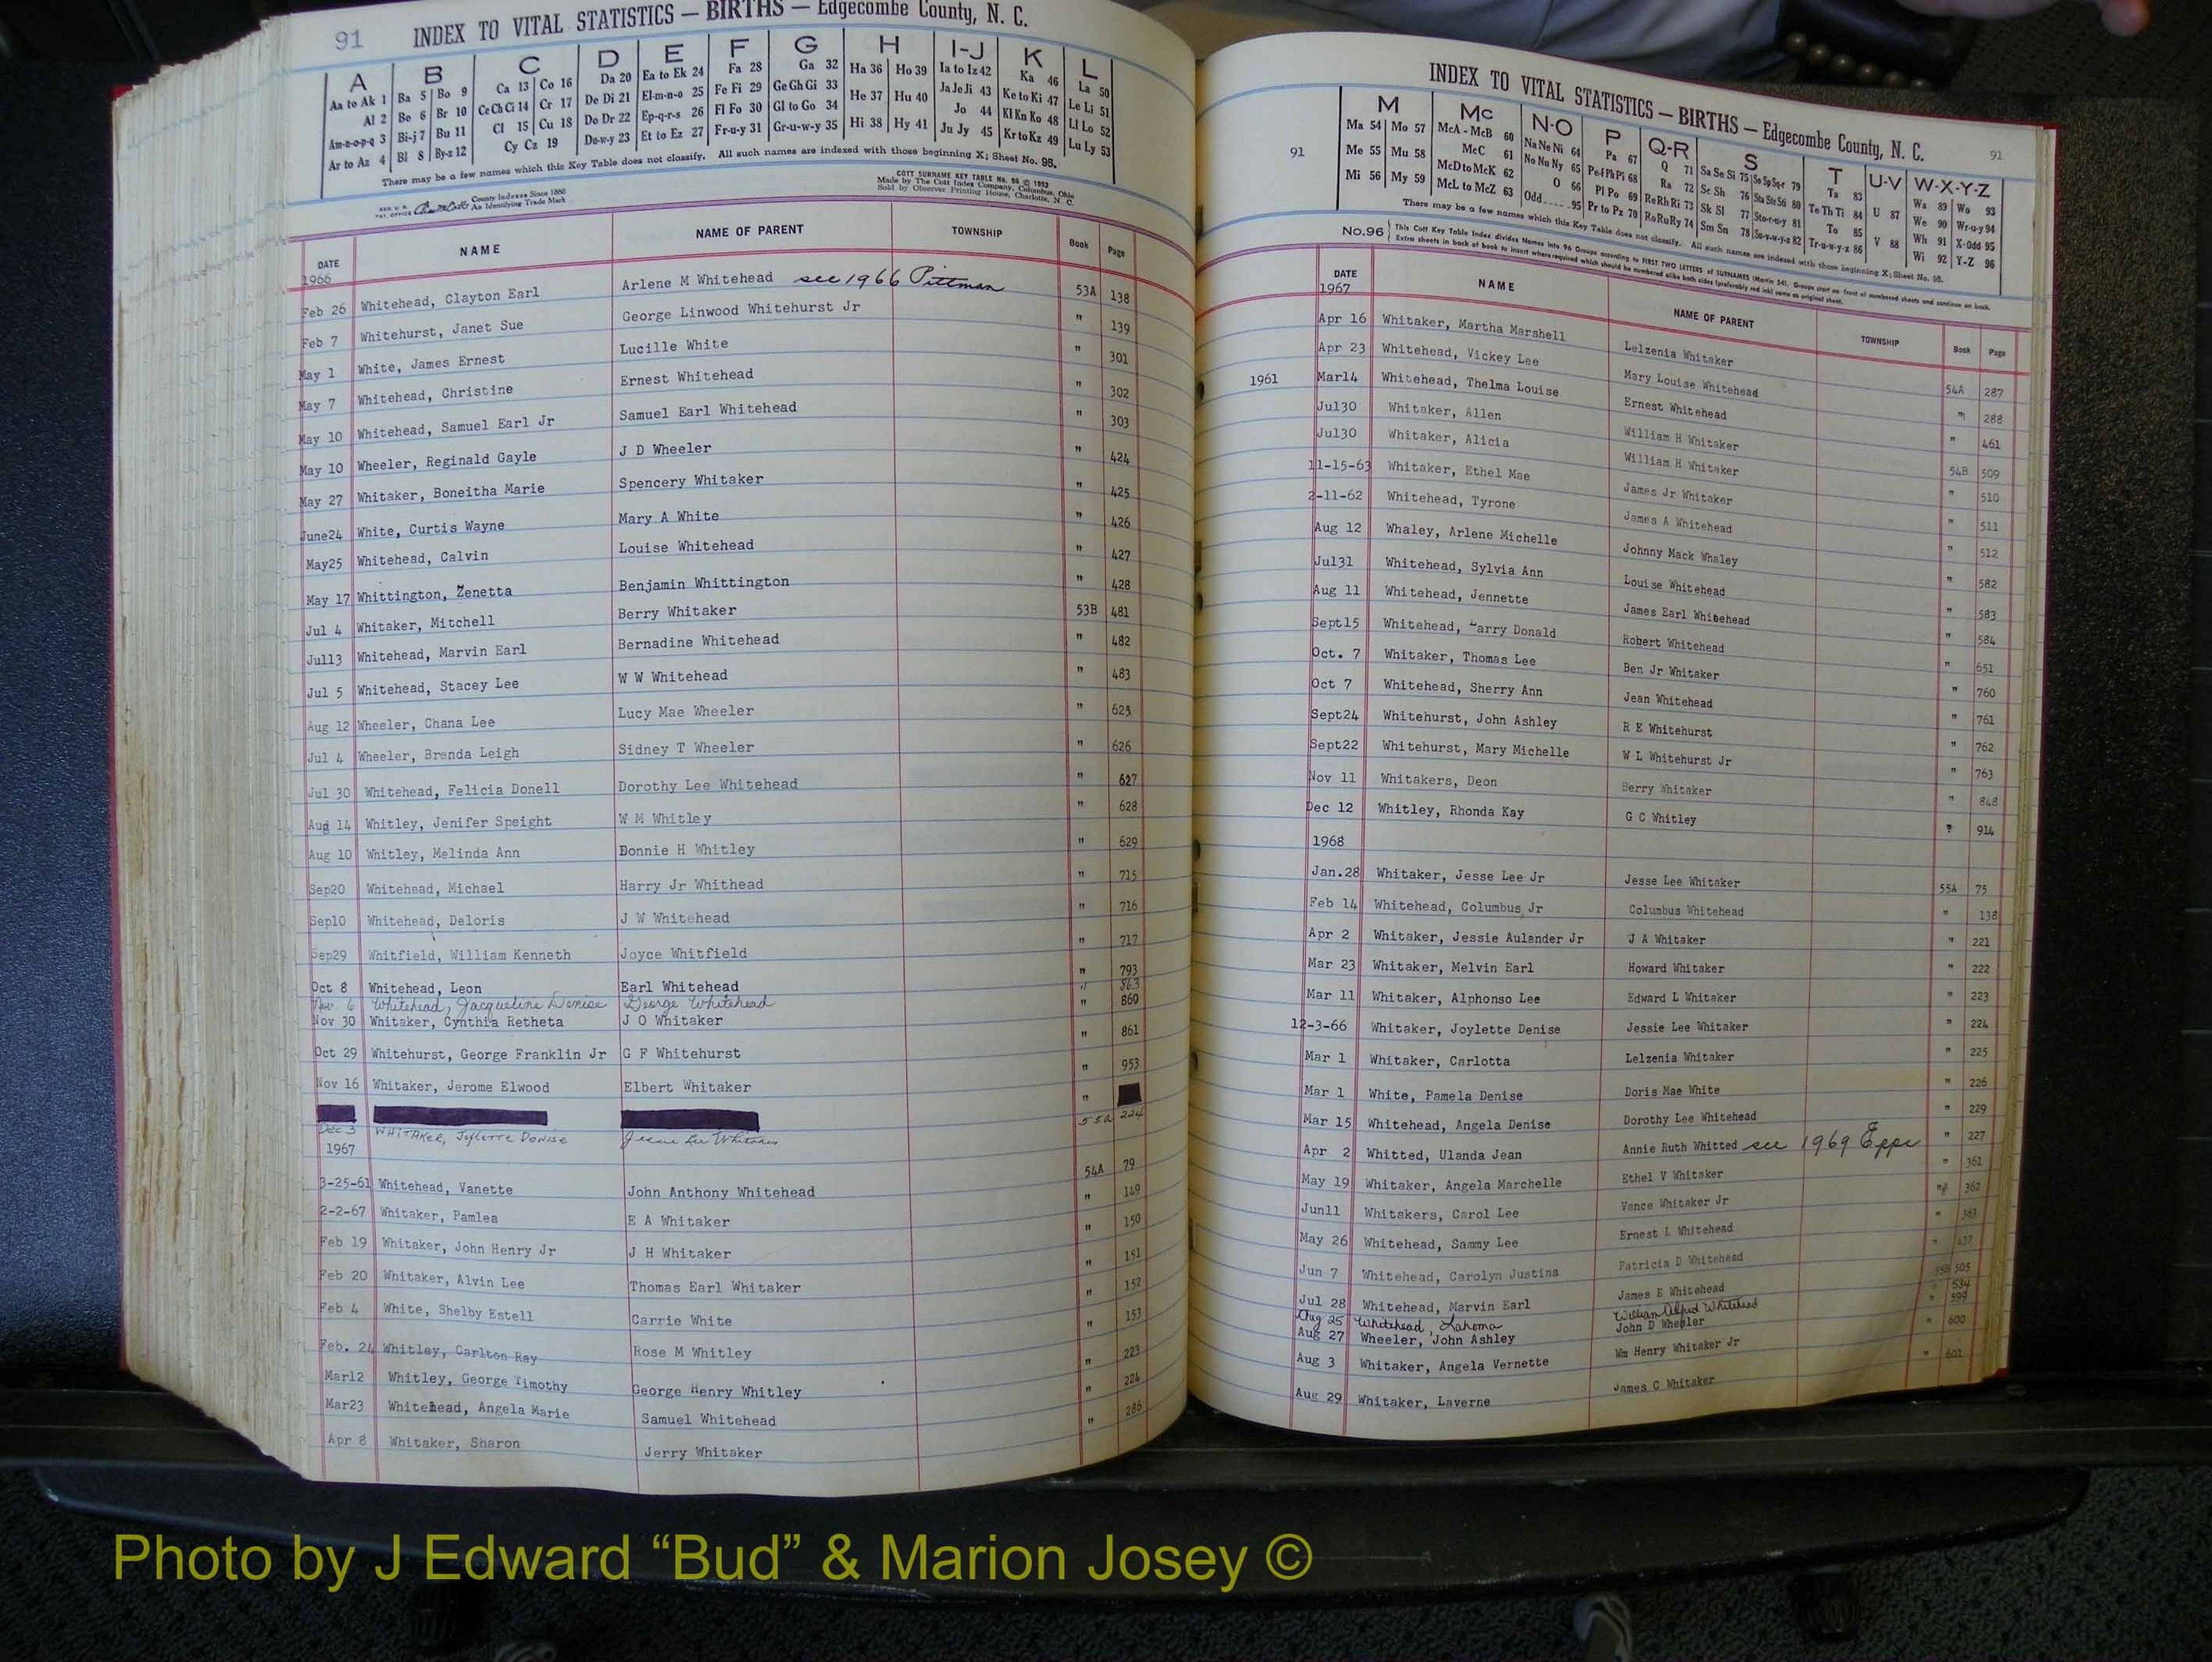 91 INDEX TO VITAL STATISTICS — BIRTHS — Edgecombe County, N. C.
A B C D E F G H I-J K L
Aa to Ak 1 Ba 5 Bo 9 Ca 13 Co 16 Da 20 Ea to Ek 24 Fa 28 Ga 32 Ha 36 Ho 39 Ia to Iz 42 Ka 46 La 50
Al 2 Be 6 Br 10 Ce Ch Ci 14 Cr 17 De Di 21 El-m-n-o 25 Fe Fi 29 Ge Gh Gi 33 He 37 Hu 40 Ja Je Ji 43 Ke to Ki 47 Le Li 51
Am-n-o-p-q 3 Bi-j 7 Bu 11 Cl 15 Cu 18 Do Dr 22 Ep-q-r-s 26 Fl Fo 30 Gl to Go 34 Hi 38 Hy 41 Jo 44 Kl Kn Ko 48 Ll Lo 52
Ar to Az 4 Bl 8 By-z 12 Cy Cz 19 Du-w-y 23 Et to Ez 27 Fr-u-y 31 Gr-u-w-y 35 Ju Jy 45 Kr to Kz 49 Lu Ly 53
There may be a few names which this Key Table does not classify. All such names are indexed with those beginning X; Sheet No. 95.
COTT SURNAME KEY TABLE No. 96 © 1952
Made by The Cott Index Company, Columbus, Ohio
Sold by Observer Printing House, Charlotte, N. C.
County Indexes Since 1888
An Identifying Trade Mark
DATE NAME NAME OF PARENT TOWNSHIP Book Page
1966
Feb 26 Whitehead, Clayton Earl Arlene M Whitehead see 1966 Pittman 53A 138
Feb 7 Whitehurst, Janet Sue George Linwood Whitehurst Jr " 139
May 1 White, James Ernest Lucille White " 301
May 7 Whitehead, Christine Ernest Whitehead " 302
May 10 Whitehead, Samuel Earl Jr Samuel Earl Whitehead " 303
May 10 Wheeler, Reginald Gayle J D Wheeler " 424
May 27 Whitaker, Boneitha Marie Spencery Whitaker " 425
June24 White, Curtis Wayne Mary A White " 426
May25 Whitehead, Calvin Louise Whitehead " 427
May 17 Whittington, Zenetta Benjamin Whittington " 428
Jul 4 Whitaker, Mitchell Berry Whitaker 53B 481
Jul13 Whitehead, Marvin Earl Bernadine Whitehead " 482
Jul 5 Whitehead, Stacey Lee W W Whitehead " 483
Aug 12 Wheeler, Chana Lee Lucy Mae Wheeler " 625
Jul 4 Wheeler, Brenda Leigh Sidney T Wheeler " 626
Jul 30 Whitehead, Felicia Donell Dorothy Lee Whitehead " 627
Aug 14 Whitley, Jenifer Speight W M Whitley " 628
Aug 10 Whitley, Melinda Ann Donnie H Whitley " 629
Sep20 Whitehead, Michael Harry Jr Whithead " 715
Sep10 Whitehead, Deloris J W Whitehead " 716
Sep29 Whitfield, William Kenneth Joyce Whitfield " 717
Oct 8 Whitehead, Leon Earl Whitehead " 793
Nov. 6 Whitehead, Jacqueline Denise George Whitehead " 863
Nov 30 Whitaker, Cynthia Retheta J O Whitaker " 860
Oct 29 Whitehurst, George Franklin Jr G F Whitehurst " 861
Nov 16 Whitaker, Jerome Elwood Elbert Whitaker " 953
"
Dec 3 WHITAKER, Joylette Denise Jessie Lee Whitaker 55A 224
1967
3-25-61 Whitehead, Vanette John Anthony Whitehead 54A 79
2-2-67 Whitaker, Pamlea E A Whitaker " 149
Feb 19 Whitaker, John Henry Jr J H Whitaker " 150
Feb 20 Whitaker, Alvin Lee Thomas Earl Whitaker " 151
Feb 4 White, Shelby Estell Carrie White " 152
Feb. 24 Whitley, Carlton Ray Rose M Whitley " 153
Mar12 Whitley, George Timothy George Henry Whitley " 223
Mar23 Whitehead, Angela Marie Samuel Whitehead " 224
Apr 8 Whitaker, Sharon Jerry Whitaker " 286
INDEX TO VITAL STATISTICS — BIRTHS — Edgecombe County, N. C.
91 91
M Mc N-O P Q-R S T U-V W-X-Y-Z
Ma 54 Mo 57 McA - McB 60 Na Ne Ni 64 Pa 67 Q 71 Sa Se Si 75 So Sp Sq-r 79 Ta 83 U 87 Wa 89 Wo 93
Me 55 Mu 58 McC 61 No Nu Ny 65 Pe-f Ph Pi 68 Ra 72 Sc Sh 76 Sta Ste Sti 80 Te Th Ti 84 V 88 We 90 Wr-u-y 94
Mi 56 My 59 McD to McK 62 O 66 Pl Po 69 Re Rh Ri 73 Sk Sl 77 Sto-r-u-y 81 To 85 Wh 91 X-Odd 95
McL to McZ 63 Odd - - - - 95 Pr to Pz 70 Ro Ru Ry 74 Sm Sn 78 Su-v-w-y-z 82 Tr-u-w-y-z 86 Wi 92 Y-Z 96
There may be a few names which this Key Table does not classify. All such names are indexed with those beginning X; Sheet No. 95.
No.96 This Cott Key Table Index divides Names into 96 Groups according to FIRST TWO LETTERS of SURNAMES (Martin 54). Groups start on front of numbered sheets and continue on back.
Extra sheets in back of book to insert where required which should be numbered alike both sides (preferably red ink) same as original sheet.
DATE NAME NAME OF PARENT TOWNSHIP Book Page
1967
Apr 16 Whitaker, Martha Marshell Lelzenia Whitaker 54A 287
Apr 23 Whitehead, Vickey Lee Mary Louise Whitehead " 288
1961 Mar14 Whitehead, Thelma Louise Ernest Whitehead " 461
Jul30 Whitaker, Allen William H Whitaker 54B 509
Jul30 Whitaker, Alicia William H Whitaker " 510
11-15-63 Whitaker, Ethel Mae James Jr Whitaker " 511
2-11-62 Whitehead, Tyrone James A Whitehead " 512
Aug 12 Whaley, Arlene Michelle Johnny Mack Whaley " 582
Jul31 Whitehead, Sylvia Ann Louise Whitehead " 583
Aug 11 Whitehead, Jennette James Earl Whitehead " 584
Sept15 Whitehead, Larry Donald Robert Whitehead " 651
Oct. 7 Whitaker, Thomas Lee Ben Jr Whitaker " 760
Oct 7 Whitehead, Sherry Ann Jean Whitehead " 761
Sept24 Whitehurst, John Ashley R E Whitehurst " 762
Sept22 Whitehurst, Mary Michelle W L Whitehurst Jr " 763
Nov 11 Whitakers, Deon Berry Whitaker " 848
Dec 12 Whitley, Rhonda Kay G C Whitley " 914
1968
Jan.28 Whitaker, Jesse Lee Jr Jesse Lee Whitaker 55A 75
Feb 14 Whitehead, Columbus Jr Columbus Whitehead " 138
Apr 2 Whitaker, Jessie Aulander Jr J A Whitaker " 221
Mar 23 Whitaker, Melvin Earl Howard Whitaker " 222
Mar 11 Whitaker, Alphonso Lee Edward L Whitaker " 223
12-3-66 Whitaker, Joylette Denise Jessie Lee Whitaker " 224
Mar 1 Whitaker, Carlotta Lelzenia Whitaker " 225
Mar 1 White, Pamela Denise Doris Mae White " 226
Mar 15 Whitehead, Angela Denise Dorothy Lee Whitehead " 229
Apr 2 Whitted, Ulanda Jean Annie Ruth Whitted see 1969 Epps " 227
May 19 Whitaker, Angela Marchelle Ethel V Whitaker " 361
Jun11 Whitakers, Carol Lee Vance Whitaker Jr " 362
May 26 Whitehead, Sammy Lee Ernest L Whitehead " 363
Jun 7 Whitehead, Carolyn Justina Patricia D Whitehead " 437
Jul 28 Whitehead, Marvin Earl James E Whitehead 55B 505
Aug 25 Whitehead, Lahoma William Alfred Whitehead " 534
Aug 27 Wheeler, John Ashley John D Wheeler " 599
Aug 3 Whitaker, Angela Vernette Wm Henry Whitaker Jr " 600
Aug 29 Whitaker, Laverne James C Whitaker " 601
Photo by J Edward “Bud” & Marion Josey ©